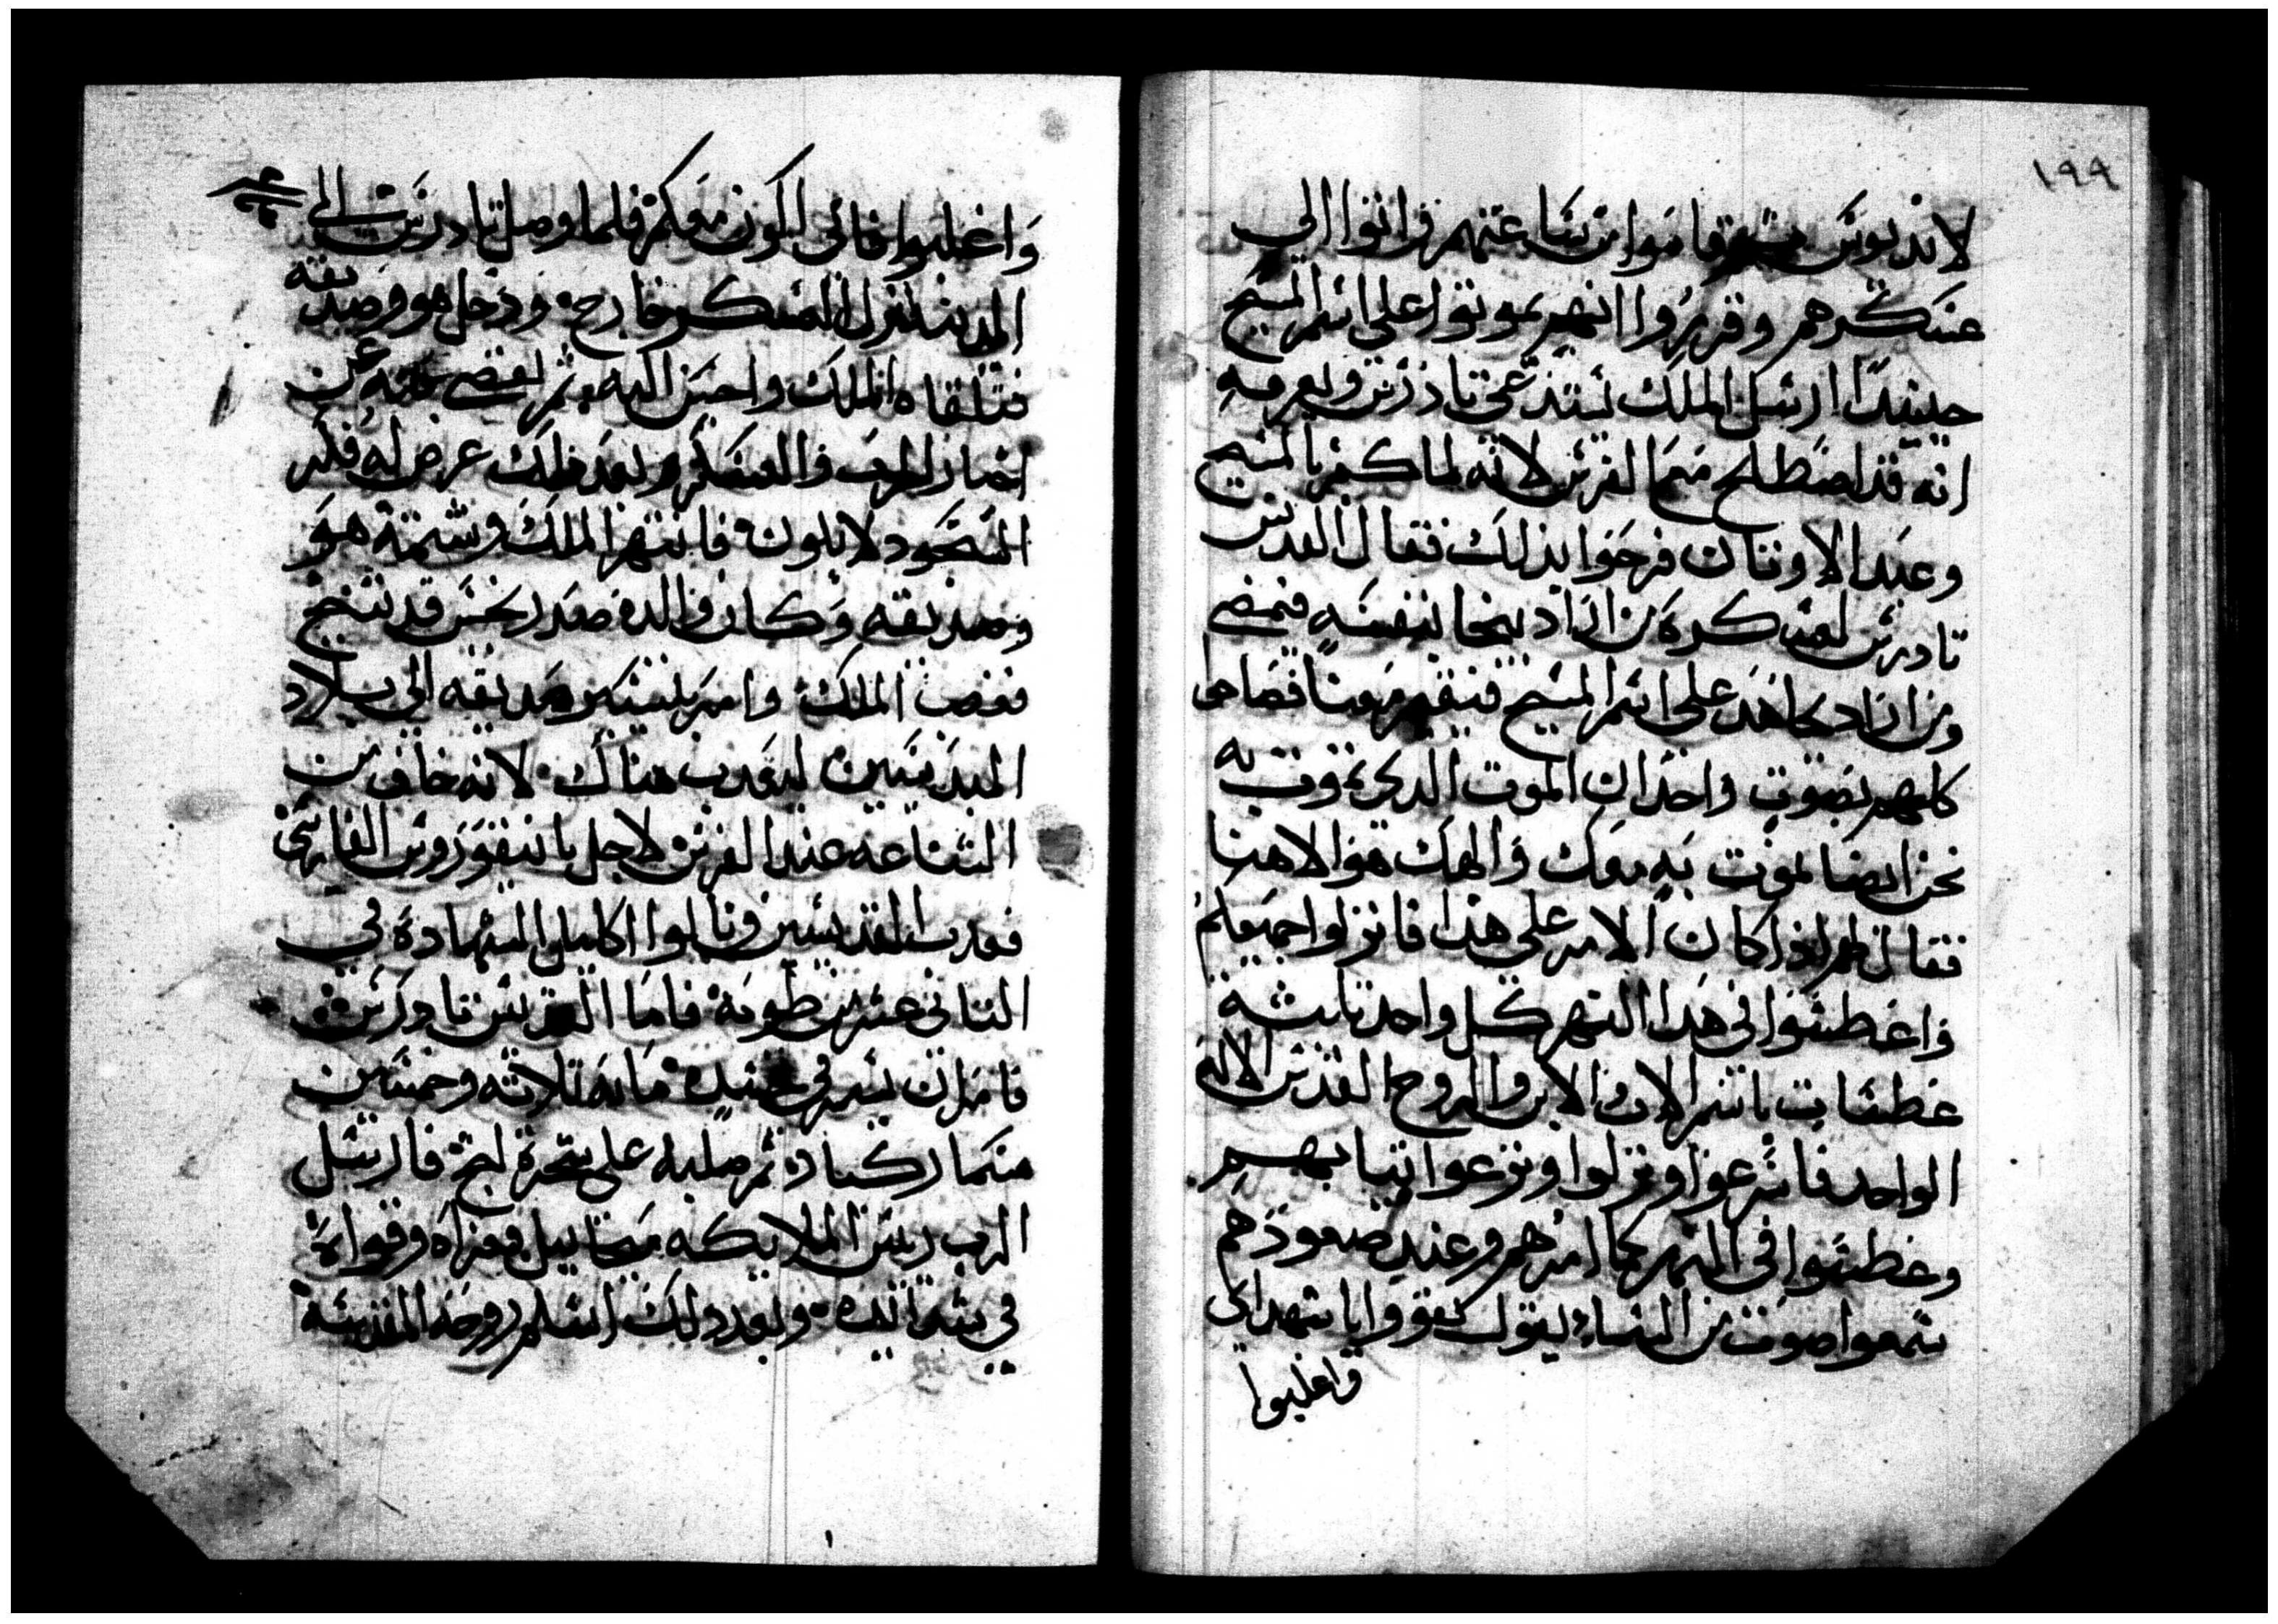 ١٩٩
لاندبوس فقاموا من ساعتهم واتوا الي
عسكرهم وقرروا انهم يموتوا على اسم المسيح
حينيدًا ارسل الملك يستدعى تادرس ويعرفه
انه قد اصطلح مع الفرس لانه لما كفر بالمسيح
وعبد الاوتان فرحوا بذلك فقال القديس
تادرس لعسكره من اراد ينجا بنفسه فيمضى
ومن اراد يجاهد على اسم المسيح فيقيم معنا فصاحوا
كلهم بصوت واحد ان الموت الدى تموت به
نحن ايضا نموت به معك والهك هو الاهنا
فقال لهم اذا كان الامر على هذا فانزلوا جميعكم
واغطسوا فى هدا النهر كل واحد تلتة
غطسات باسم الاب والابن والروح القدس الاله
الواحد فاسرعوا ونزلوا ونزعوا تيابهم
وغطسوا فى النهر كما امرهم وعند صعودهم
سمعوا صوت من السماء يقول تقووا يا شهداى
واغلبوا
واغلبوا فانى اكون معكم فلما وصل تادرس الى
المدينه انزل العسكر خارج ودخل هو وصديقه
فتلقاه الملك واحسن اليه ثم عن
اخبار الحرب والعسكر وبعد ذلك عرض له فكر
السجود لابلون فانتهر الملك وشتمه هو
وصديقه وكان والده صدرخس قد تنيح
فغضب الملك وامر بصديقه الى بلاد
ليعدب هناك لانه خاف من
الشناعه عند الفرس لاجل بانيقوروس الفارسى
فعدب القديسين ونالوا اكليل الشهادة فى
التانى عشر من طوبه فاما القديس تادرس
فامر ان يسمر فى جسده مايه تلاته وخمسين
مسمار كبار ثم صلبه على شجرة لبخ فارسل
الرب رييس الملايكه ميخاييل فعزاه وقواه
في شدايده وبعد دلك اسلم روحه المقدسة